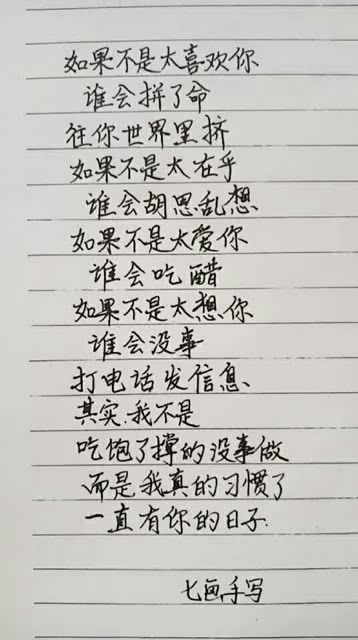 如果不是太喜欢你
谁会拼了命
往你世界里挤
如果不是太在乎
谁会胡思乱想
如果不是太爱你
谁会吃醋
如果不是太想你
谁会没事
打电话发信息
其实.我不是
吃饱了撑的没事做
而是我真的习惯了
一直有你的日子.
七画手写